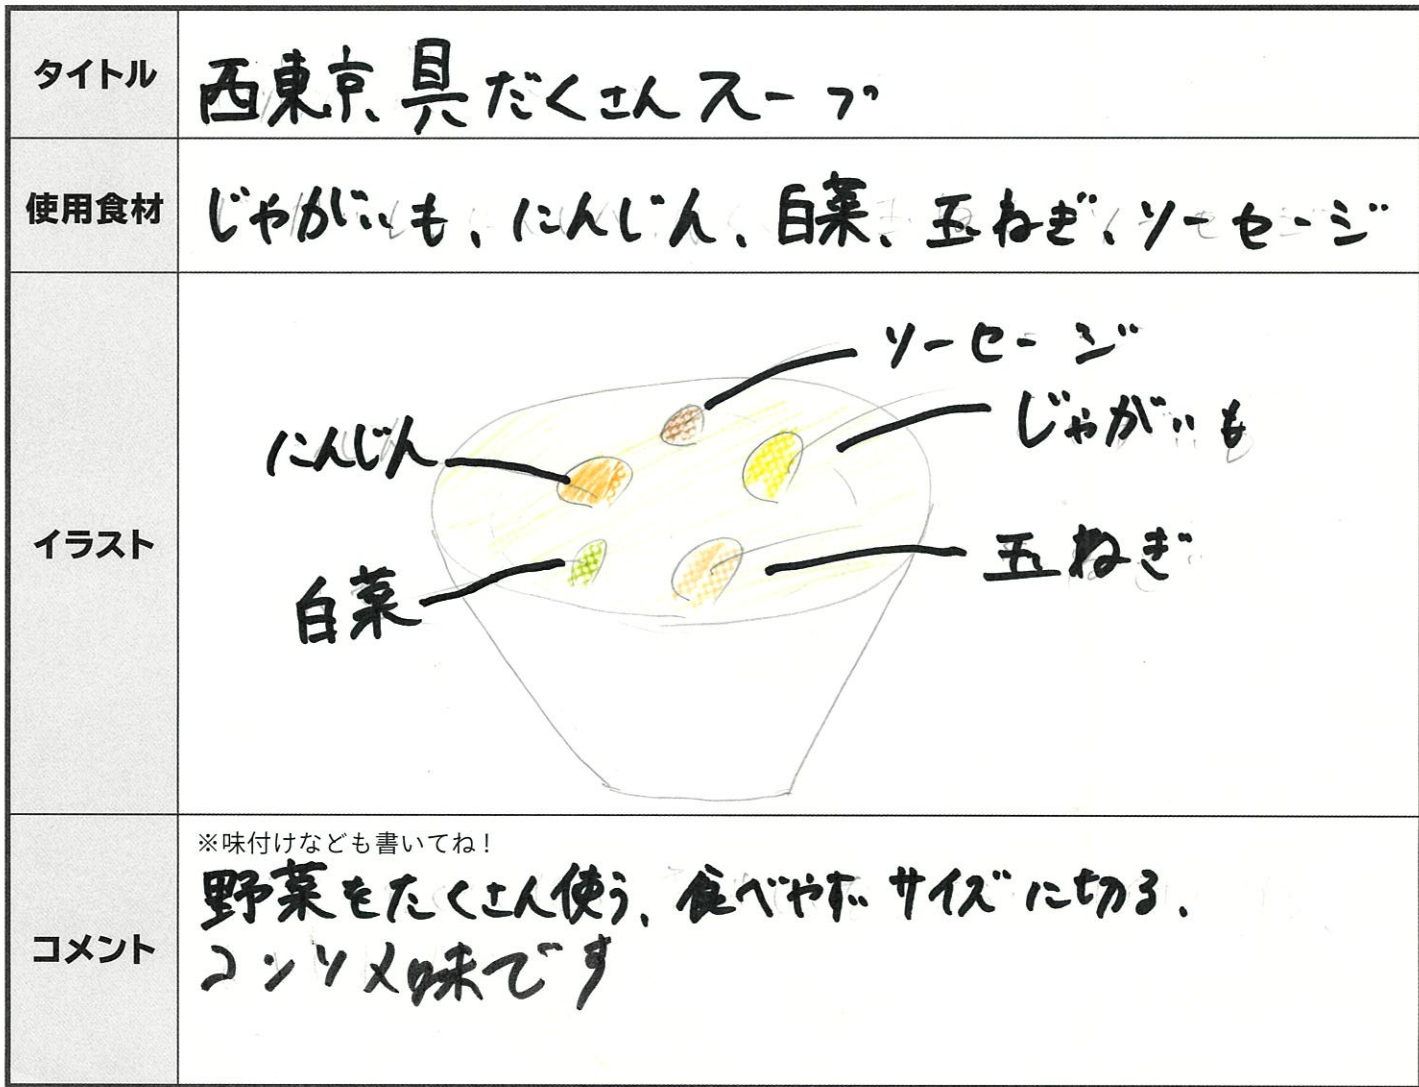 タイトル
西東京具だくさんスープ
使用食材
じゃがいも、にんじん、白菜、玉ねぎ、ソーセージ
イラスト
ソーセージ
じゃがいも
にんじん
玉ねぎ
白菜
コメント
※味付けなども書いてね!
野菜をたくさん使う、食べやすいサイズに切る、
コンソメ味です